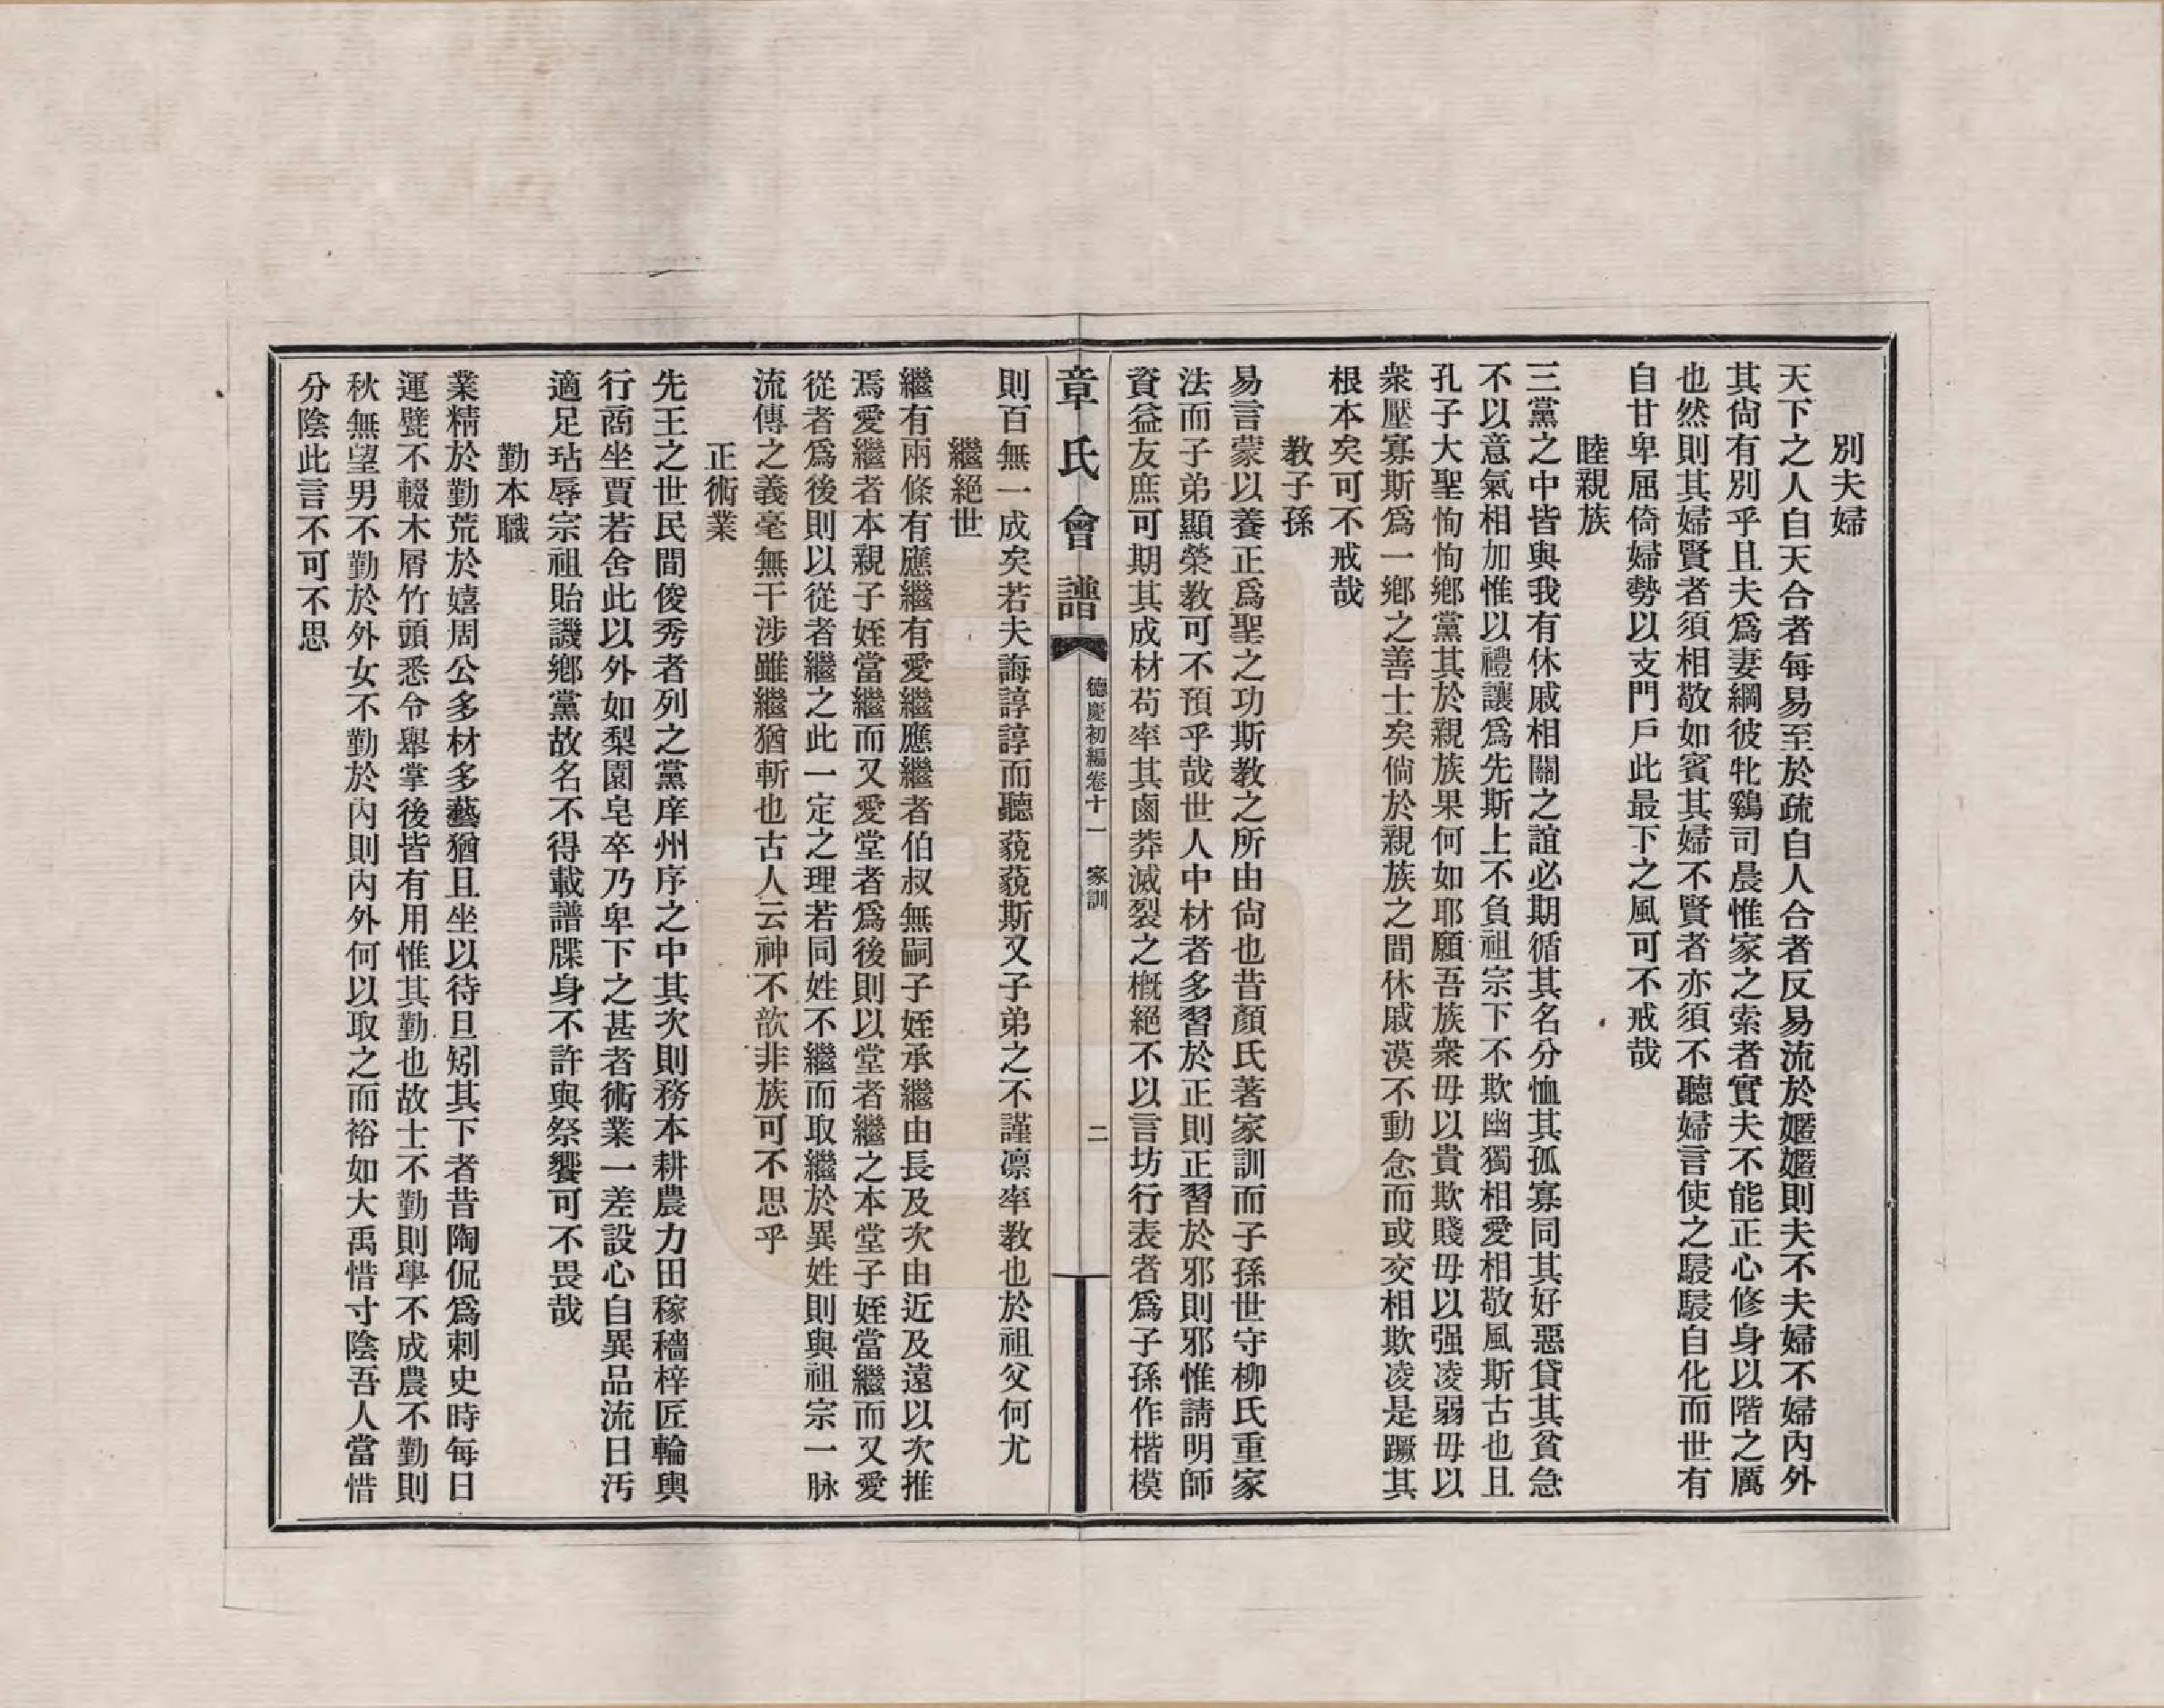 別夫婦
天下之人自天合者每易至於疏自人合者反易流於媟媟則夫不夫婦不婦內外
其尙有別乎且夫爲妻綱彼牝鷄司晨惟家之索者實夫不能正心修身以階之厲
也然則其婦賢者須相敬如賓其婦不賢者亦須不聽婦言使之駸駸自化而世有
自甘卑屈倚婦勢以支門戶此最下之風可不戒哉
睦親族
三黨之中皆與我有休戚相關之誼必期循其名分恤其孤寡同其好惡貸其貧急
不以意氣相加惟以禮讓爲先斯上不負祖宗下不欺幽獨相愛相敬風斯古也且
孔子大聖恂恂鄉黨其於親族果何如耶願吾族衆毋以貴欺賤毋以强凌弱毋以
衆壓寡斯爲一鄉之善士矣倘於親族之間休戚漠不動念而或交相欺凌是蹶其
根本矣可不戒哉
教子孫
易言蒙以養正爲聖之功斯教之所由尙也昔顏氏著家訓而子孫世守柳氏重家
法而子弟顯榮教可不預乎哉世人中材者多習於正則正習於邪則邪惟請明師
資益友庶可期其成材苟率其鹵莽滅裂之槪絕不以言坊行表者爲子孫作楷模
章氏會譜
德慶初編卷十一 家訓
二
則百無一成矣若夫誨諄諄而聽藐藐斯又子弟之不謹凛率教也於祖父何尤
繼絕世
繼有兩條有應繼有愛繼應繼者伯叔無嗣子姪承繼由長及次由近及遠以次推
焉愛繼者本親子姪當繼而又愛堂者爲後則以堂者繼之本堂子姪當繼而又愛
從者爲後則以從者繼之此一定之理若同姓不繼而取繼於異姓則與祖宗一脉
流傳之義毫無干涉雖繼猶斬也古人云神不歆非族可不思乎
正術業
先王之世民間俊秀者列之黨庠州序之中其次則務本耕農力田稼穡梓匠輪輿
行商坐賈若舍此以外如梨園皂卒乃卑下之甚者術業一差設心自異品流日汚
適足玷辱宗祖貽譏鄉黨故名不得載譜牒身不許與祭饗可不畏哉
勤本職
業精於勤荒於嬉周公多材多藝猶且坐以待旦矧其下者昔陶侃爲刺史時每日
運甓不輟木屑竹頭悉令舉掌後皆有用惟其勤也故士不勤則學不成農不勤則
秋無望男不勤於外女不勤於內則內外何以取之而裕如大禹惜寸陰吾人當惜
分陰此言不可不思